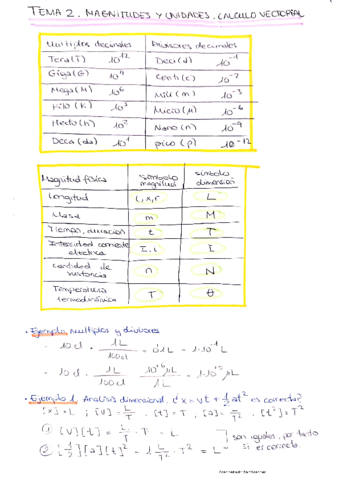 TEMA 2. MAGNITUDES Y UNIDADES. CALCULO VECTORIAL
Multiplos decimales Divisores decimales
Tera (T) 10^12 Deci (d) 10^-1
Giga (G) 10^9 Centi (c) 10^-2
Mega (M) 10^6 Mili (m) 10^-3
Kilo (K) 10^3 Micro (μ) 10^-6
Hecto (h) 10^2 Nano (n) 10^-9
Deca (da) 10^1 pico (p) 10^-12
Magnitud física símbolo magnitud símbolo dimensión
Longitud l, x, r L
Masa m M
Tiempo, duración t T
Intensidad corriente eléctrica I, i I
Cantidad de sustancia n N
Temperatura termodinámica T θ
· Ejemplo multiplos y divisores
- 10 cl · 1L / 100cl = 0'1 L = 1·10^-1 L
- 10 cl · 1L / 100 cl · 10^6 μL / 1L = 1·10^5 μL
· Ejemplo 1. Analisis dimensional. ¿ x = vt + 1/2 at^2 es correcta?
[x] = L ; [V] = L/T . [t] = T , [a] = L/T^2 . [t^2] = T^2
① [V] [t] = L/T · T = L
② [1/2] [a] [t]^2 = 1 L/T^2 · T^2 = L
son iguales, por tanto
si es correcta